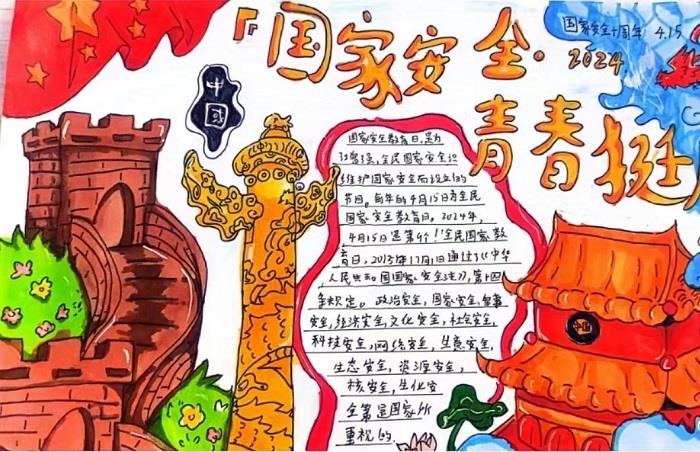 「国家安全·
青春挺
国家安全十周年 4.15
2024
中國
国家安全教育日,是为
了增强全民国家安全识
维护国家安全而设立的
节日。每年的4月15日为全民
国家安全教育日。2024年,
4月15日是第个!!全民国家教
育日,2015年17月1日通过了《中华
人民共和国国家安全法》,第十四
条规定。政治安全,国家安全,军事
安全,经济安全,文化安全,社会安全,
科技安全,网络安全,生态安全,
生态安全,资源安全,
核安全,生化安
全等是国家所
重视的.
中国